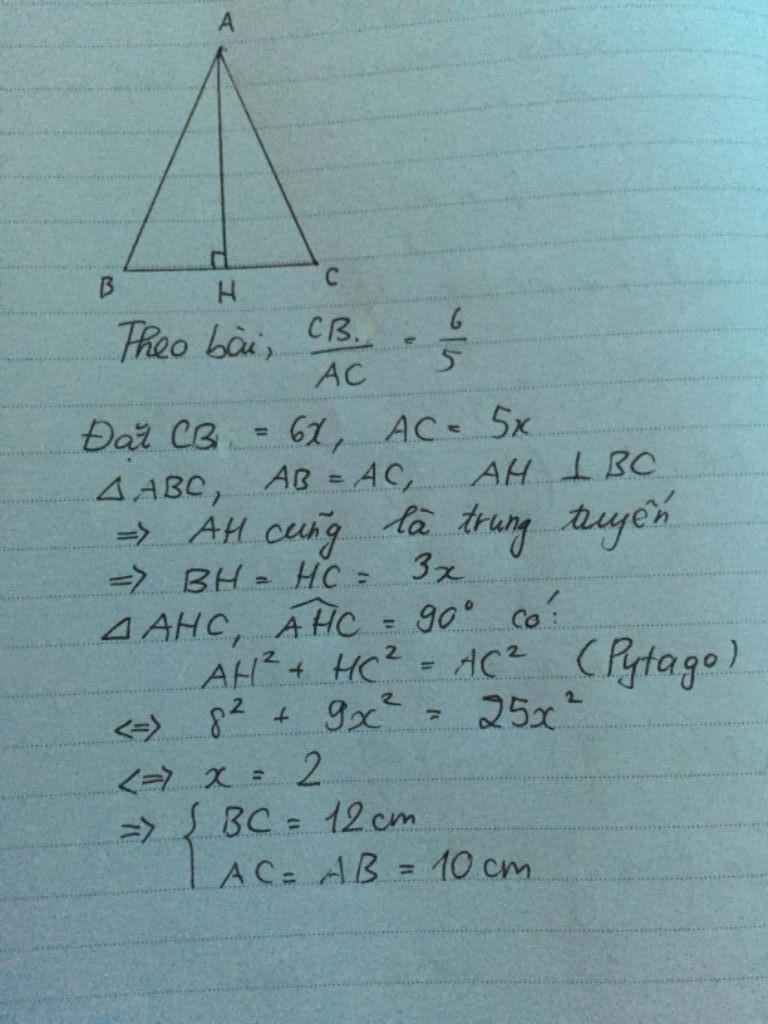 A
B
H
C
Theo bài, CB/AC = 6/5
Đặt CB = 6x, AC = 5x
△ABC, AB = AC, AH ⊥ BC
=> AH cũng là trung tuyến
=> BH = HC = 3x
△AHC, \widehat{AHC} = 90° có:
AH² + HC² = AC² (Pytago)
<=> 8² + 9x² = 25x²
<=> x = 2
=> { BC = 12 cm
AC = AB = 10 cm